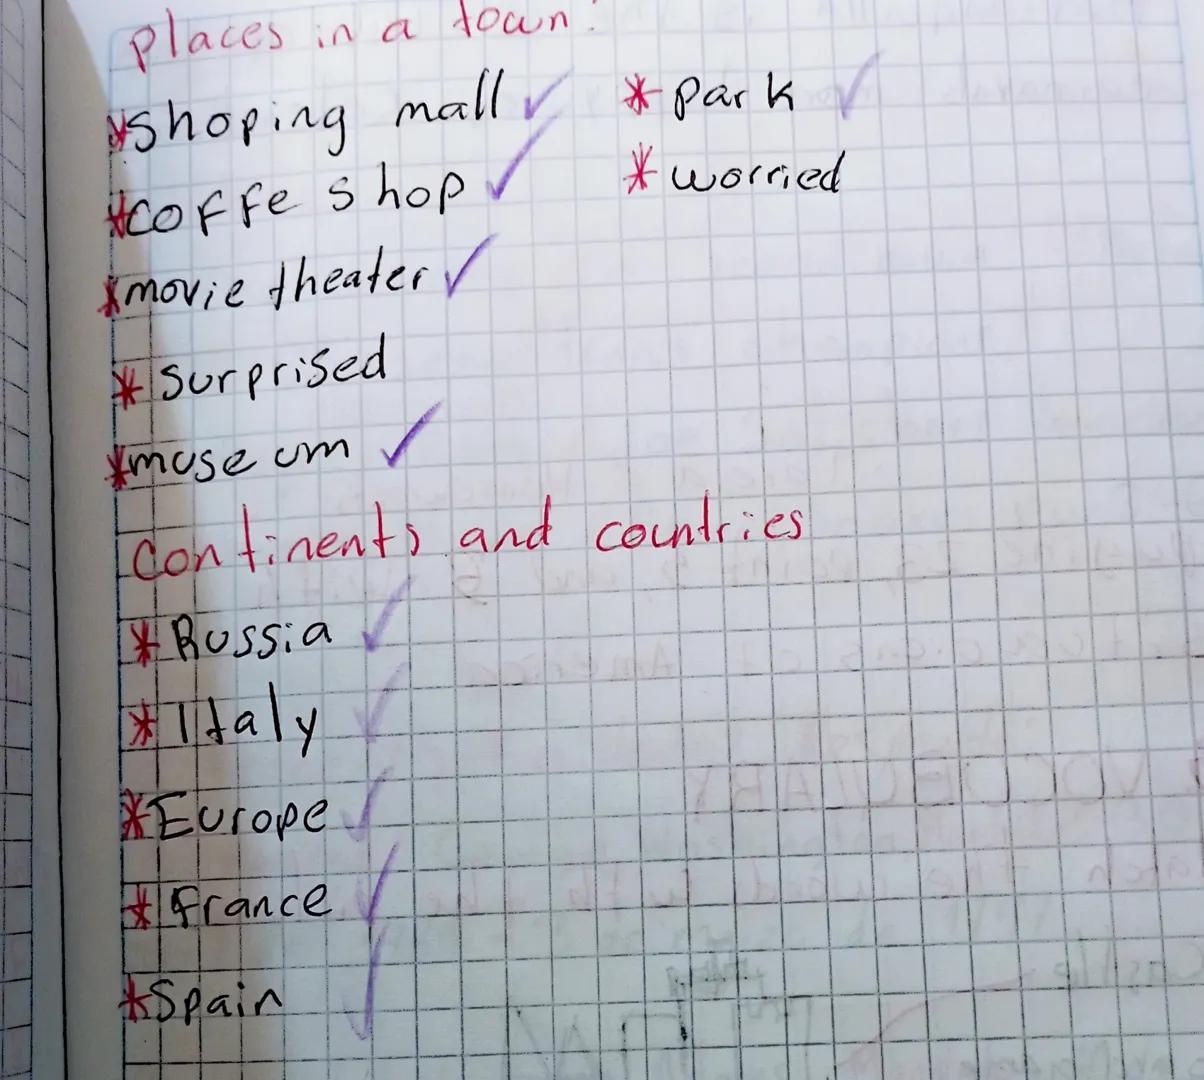 places in a town:
*shoping mall ✓
*coffe shop ✓
*movie theater ✓
*surprised
*museum ✓
*park ✓
*worried
continents and countries
*Russia ✓
*Italy ✓
*Europe ✓
*france ✓
*Spain ✓